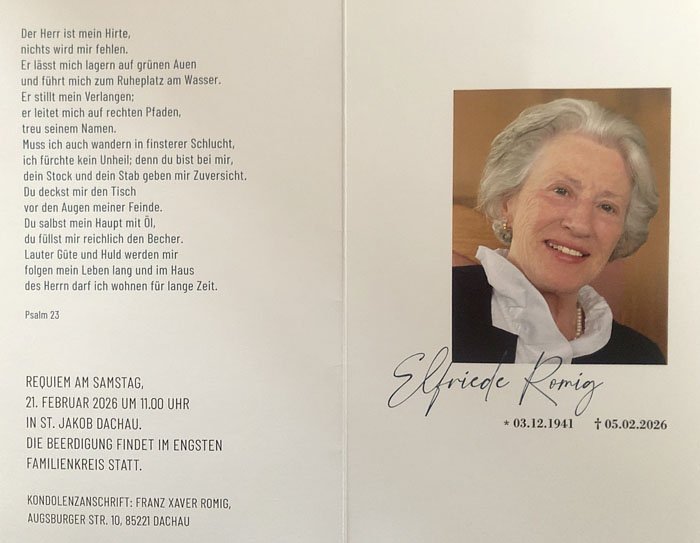 Der Herr ist mein Hirte,
nichts wird mir fehlen.
Er lässt mich lagern auf grünen Auen
und führt mich zum Ruheplatz am Wasser.
Er stillt mein Verlangen;
er leitet mich auf rechten Pfaden,
treu seinem Namen.
Muss ich auch wandern in finsterer Schlucht,
ich fürchte kein Unheil; denn du bist bei mir,
dein Stock und dein Stab geben mir Zuversicht.
Du deckst mir den Tisch
vor den Augen meiner Feinde.
Du salbst mein Haupt mit Öl,
du füllst mir reichlich den Becher.
Lauter Güte und Huld werden mir
folgen mein Leben lang und im Haus
des Herrn darf ich wohnen für lange Zeit.
Psalm 23
REQUIEM AM SAMSTAG,
21. FEBRUAR 2026 UM 11.00 UHR
IN ST. JAKOB DACHAU.
DIE BEERDIGUNG FINDET IM ENGSTEN
FAMILIENKREIS STATT.
KONDOLENZANSCHRIFT: FRANZ XAVER ROMIG,
AUGSBURGER STR. 10, 85221 DACHAU
Elfriede Romig
* 03.12.1941 † 05.02.2026